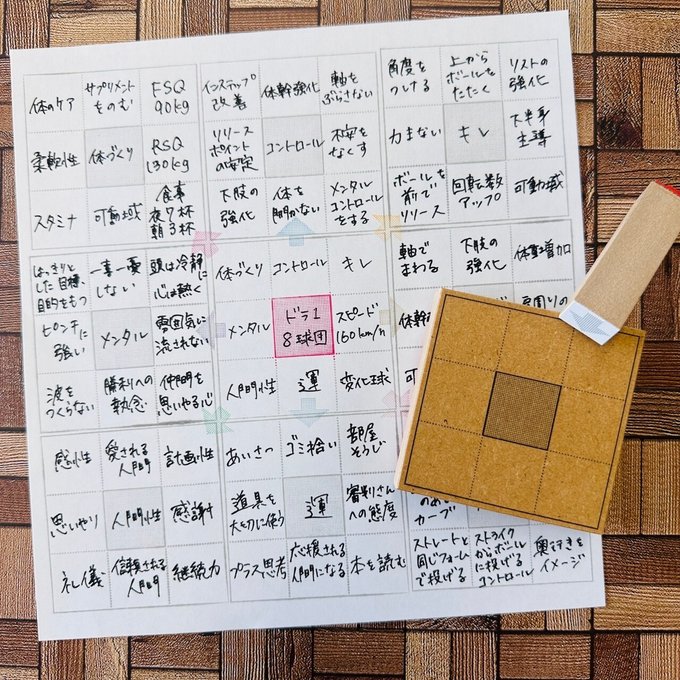 体のケア
サプリメント
をのむ
FSQ
90kg
柔軟性
体づくり
RSQ
130kg
スタミナ
可動域
食事
夜7杯
朝3杯
インステップ
改善
体幹強化
軸を
ぶらさない
リリース
ポイント
の安定
コントロール
不安を
なくす
下肢の
強化
体を
開かない
メンタル
コントロール
をする
角度を
つける
上から
ボールを
たたく
リストの
強化
力まない
キレ
下半身
主導
ボールを
前で
リリース
回転数
アップ
可動域
はっきりと
した目標、
目的をもつ
一喜一憂
しない
頭は冷静に
心は熱く
ピンチに
強い
メンタル
雰囲気に
流されない
波を
つくらない
勝利への
執念
仲間を
思いやる心
体づくり
コントロール
キレ
メンタル
ドラ1
8球団
スピード
160km/h
人間性
運
変化球
軸で
まわる
下肢の
強化
体重増加
体幹
肩周りの
可
感性
愛される
人間
計画性
思いやり
人間性
感謝
礼儀
信頼される
人間
継続力
あいさつ
ゴミ拾い
部屋
そうじ
道具を
大切に使う
運
審判さん
への態度
プラス思考
応援される
人間になる
本を読む
のある
カーブ
ストレートと
同じフォーム
で投げる
ストライク
からボール
に投げる
コントロール
奥行きを
イメージ